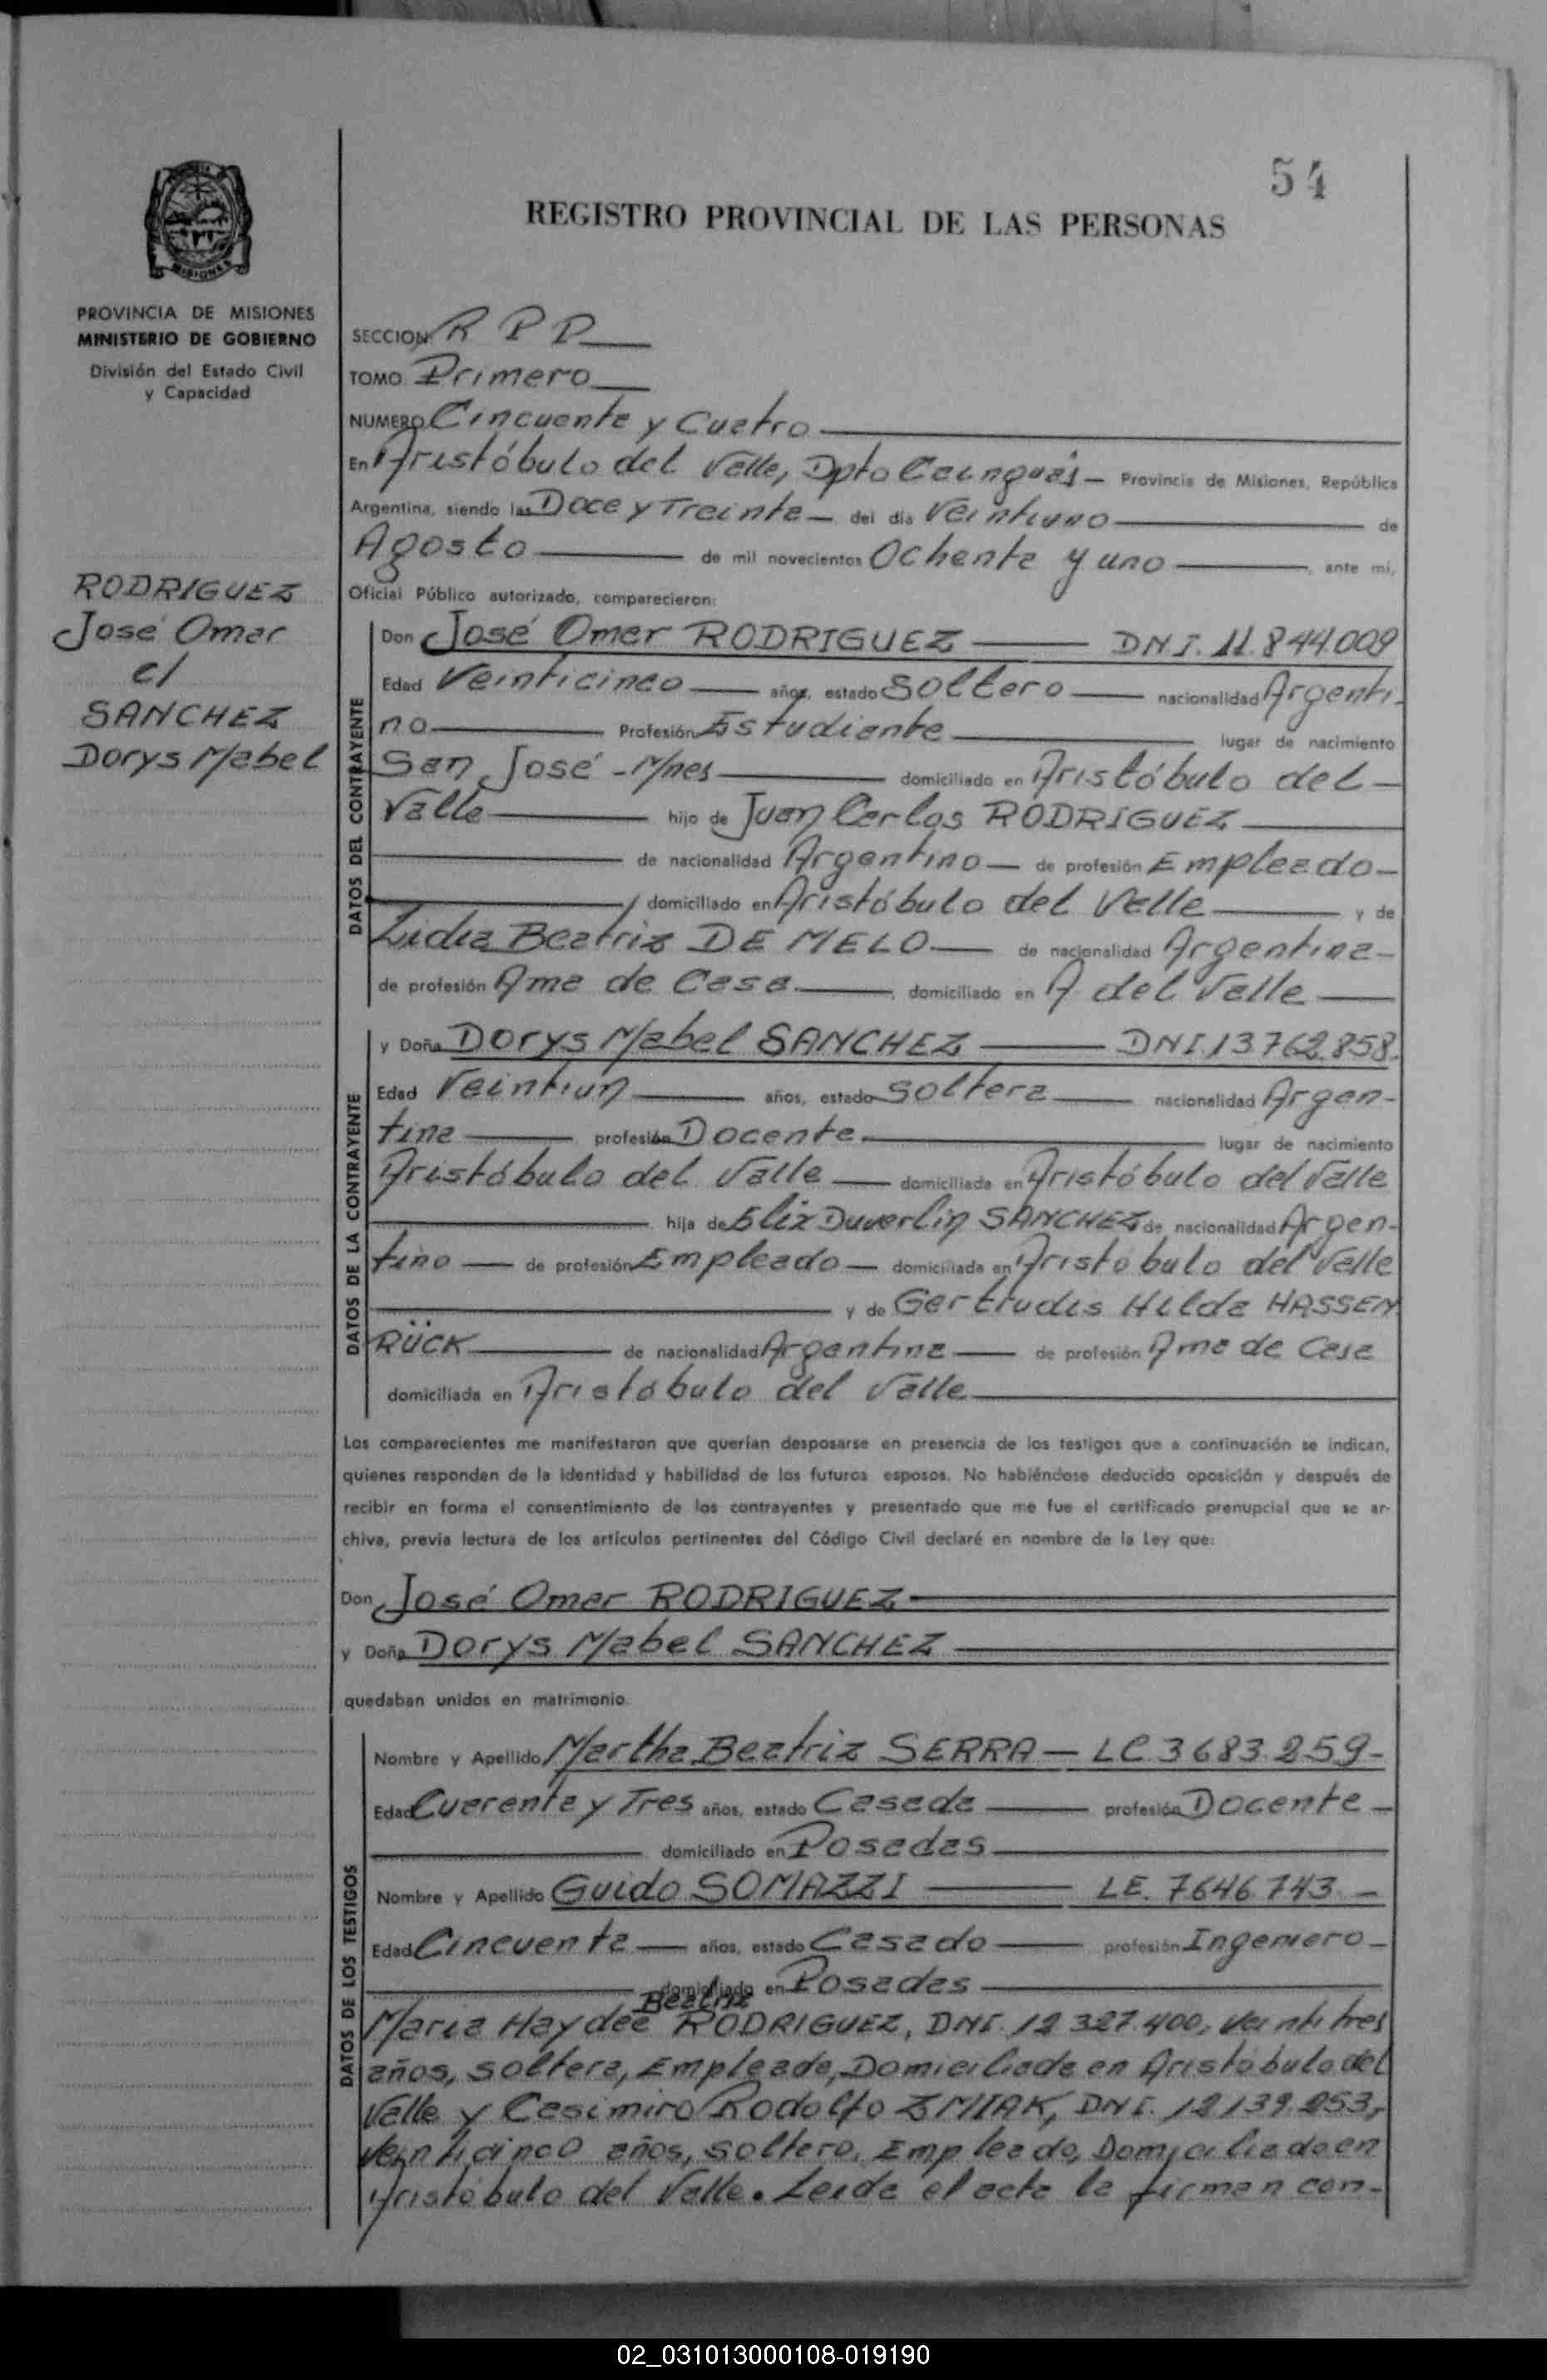 54
REGISTRO PROVINCIAL DE LAS PERSONAS
MISIONES
PROVINCIA DE MISIONES
MINISTERIO DE GOBIERNO
División del Estado Civil
y Capacidad
RODRIGUEZ
José Omar
c/
SANCHEZ
Dorys Mabel
SECCION R P P
TOMO Primero
NUMERO Cincuenta y Cuatro
En Aristóbulo del Valle, Dpto Cainguás - Provincia de Misiones, República
Argentina, siendo las Doce y Treinta - del día Veintiuno de
Agosto de mil novecientos Ochenta y uno, ante mí,
Oficial Público autorizado, comparecieron:
DATOS DEL CONTRAYENTE
Don José Omar RODRIGUEZ DNI. 11.844.009
Edad Veinticinco años, estado Soltero nacionalidad Argenti-
no Profesión Estudiante lugar de nacimiento
San José - Mnes domiciliado en Aristóbulo del
Valle hijo de Juan Carlos RODRIGUEZ
de nacionalidad Argentino de profesión Empleado
, domiciliado en Aristóbulo del Valle y de
Lidia Beatriz DE MELO de nacionalidad Argentina
de profesión Ama de Casa, domiciliado en A del Valle
DATOS DE LA CONTRAYENTE
y Doña Dorys Mabel SANCHEZ DNI 13762.858.
Edad Veintiun años, estado Soltera nacionalidad Argen-
tina profesión Docente lugar de nacimiento
Aristóbulo del Valle domiciliada en Aristóbulo del Valle
hija de Elix Duverlin SANCHEZ de nacionalidad Argen-
tino de profesión Empleado domiciliada en Aristobulo del Valle
y de Gertrudis Hilda HASSEN
RÜCK de nacionalidad Argentina de profesión Ama de Casa
domiciliada en Aristobulo del Valle
Los comparecientes me manifestaron que querían desposarse en presencia de los testigos que a continuación se indican,
quienes responden de la identidad y habilidad de los futuros esposos. No habiéndose deducido oposición y después de
recibir en forma el consentimiento de los contrayentes y presentado que me fue el certificado prenupcial que se ar-
chiva, previa lectura de los artículos pertinentes del Código Civil declaré en nombre de la Ley que:
Don José Omar RODRIGUEZ
y Doña Dorys Mabel SANCHEZ
quedaban unidos en matrimonio.
DATOS DE LOS TESTIGOS
Nombre y Apellido Martha Beatriz SERRA - LC 3683.259-
Edad Cuarenta y Tres años, estado Casada profesión Docente
domiciliado en Posadas
Nombre y Apellido Guido SOMAZZI LE. 7646.743.-
Edad Cincuenta años, estado Casado profesión Ingeniero
domiciliado en Posadas
Beatriz
Maria Haydée RODRIGUEZ, DNI. 12 327.400, Veintitres
años, soltera, Empleada, Domiciliada en Aristobulo del
Valle y Casimiro Rodolfo ZMIAK, DNI. 12139.253,
Veinticinco años, soltero, Empleado, Domiciliado en
Aristobulo del Valle. Leida el acta la firman con-
02_031013000108-019190